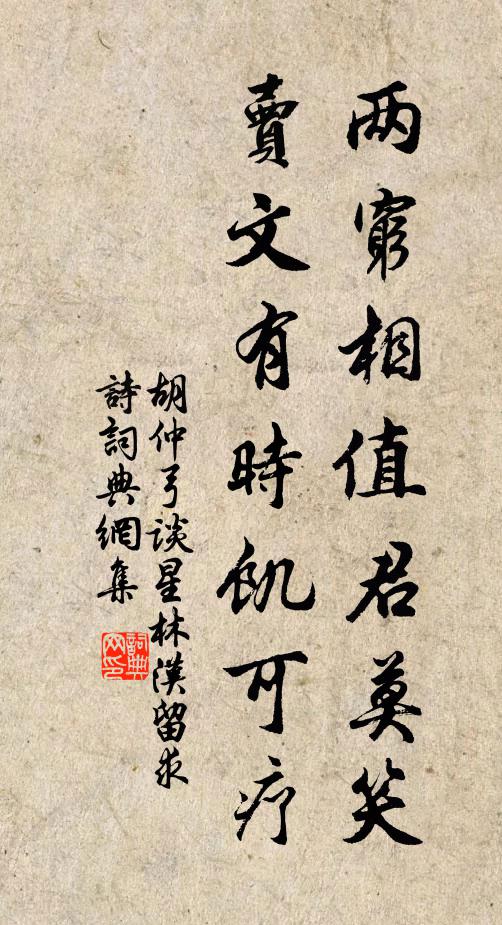 两窮相值君莫笑
賣文有時飢可疗
胡仲弓談星林漢留求
詩詞典網集
詞典
网印